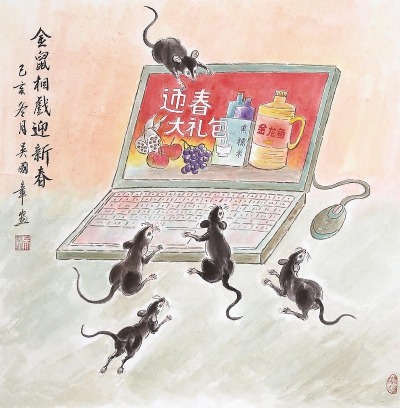 金鼠相戲迎新春
己亥冬月吴國章画
迎春
大礼包
金龙鱼